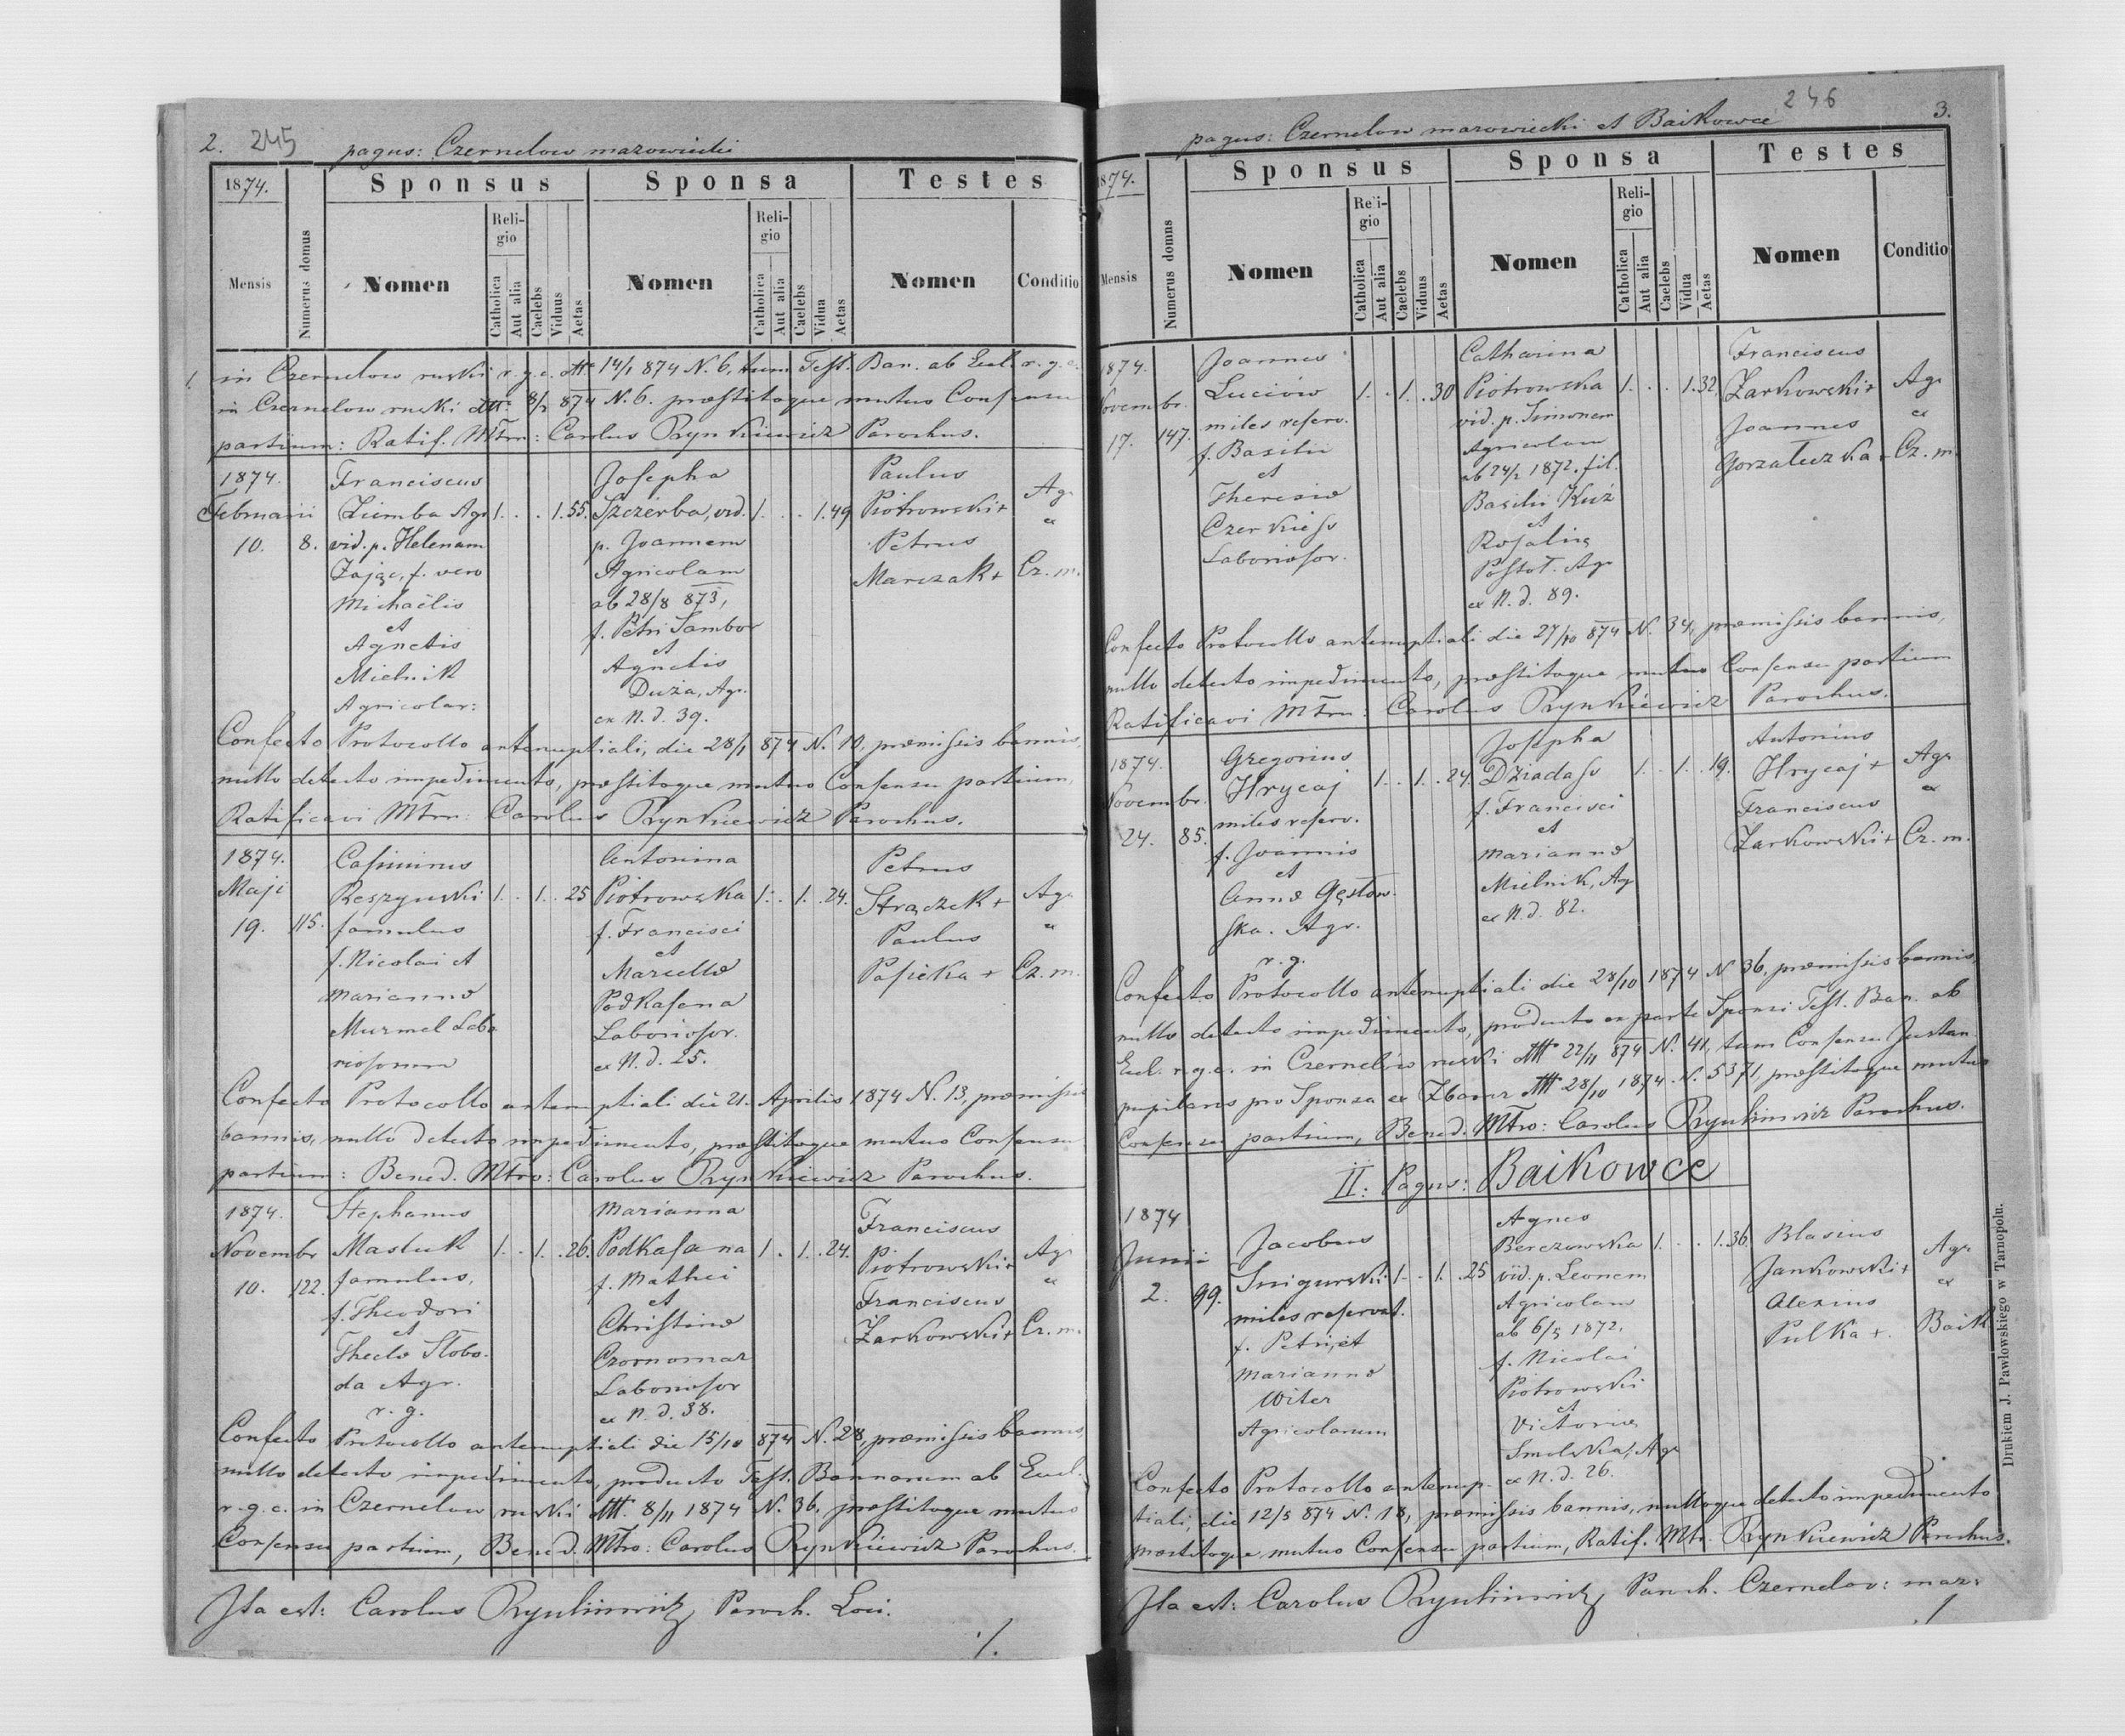 2. 245 pagus: Czernelow mazowiecki
1874. Sponsus Sponsa Testes
Mensis Numerus domus Nomen Religio Catholica Aut alia Caelebs Viduus Aetas Nomen Religio Catholica Aut alia Caelebs Vidua Aetas Nomen Conditio
in Czernelow ruski r. g. c. dtto 14/1 874 N. 6, tum Test. Ban. ab Eccl. r. g. c.
in Czernelow ruski dtto 8/2 874 N. 6. præstitoque mutuo Consensu
partium: Ratif. Mtrm: Carolus Rynkiewicz Parochus.
1874. Franciscus Josepha Paulus
Februarii Ziemba Agr. 1. . . 1. 55. Szczerba, vid. 1. . . 1. 49 Piotrowski + Agr
10. 8. vid. p. Helenam p. Joannem Petrus ex
Zając, f. vero Agricolam Marczak + Cz. m.
Michaëlis ab 28/8 873,
et f. Petri Sambor
Agnetis et
Mielnik Agnetis
Agricolar: Duża, Agr.
ex N. d. 39.
Confecto Protocollo antenuptiali, die 28/1 874 N. 10, præmissis bannis,
nullo detecto impedimento, præstitoque mutuo Consensu partium,
Ratificavi Mtrm: Carolus Rynkiewicz Parochus.
1874. Casimirus Antonina Petrus
Maji Reszyński 1. . 1. . 25 Piotrowska 1. . 1. . 24. Strączek + Agr
19. 115. famulus f. Francisci Paulus ex
f. Nicolai et et Pasieka + Cz. m.
Mariannæ Marcellæ
Murmel Labo Podkasana
riosorum Laboriosor.
ex N. d. 25.
Confecto Protocollo antenuptiali die 21. Aprilis 1874 N. 13, præmissis
bannis, nullo detecto impedimento, præstitoque mutuo Consensu
partium: Bened. Mtro: Carolus Rynkiewicz Parochus.
1874. Stephanus Marianna Franciscus
Novembr Masluk 1. . 1. . 26. Podkasana 1 . 1. . 24. Piotrowski + Agr
10. 122. famulus, f. Mathei Franciscus ex
f. Theodori et Żarkowski + Cz. m.
et Christinæ
Theclæ Słobo- Czornomaz
da Agr. Laboriosor
r. g. ex N. d. 38.
Confecto Protocollo antenuptiali die 15/10 874 N. 28, præmissis bannis,
nullo detecto impedimento, producto Test. Bannorum ab Eccl.
r. g. c. in Czernelow ruski dtt. 8/11 1874 N. 36, præstitoque mutuo
Consensu partium, Bened. Mtro: Carolus Rynkiewicz Parochus.
Ita est: Carolus Rynkiewicz Paroch. Loci.
./.
246 3.
pagus: Czernelow mazowiecki et Baikowce
1874. Sponsus Sponsa Testes
Mensis Numerus domus Nomen Religio Catholica Aut alia Caelebs Viduus Aetas Nomen Religio Catholica Aut alia Caelebs Vidua Aetas Nomen Conditio
1874. Joannes Catharina Franciscus
Novembr. Luciów 1. . 1. . 30 Piotrowska 1. . . 1. 32, Żarkowski + Agr
17. 147. miles reserv. vid. p. Simonem Joannes ex
f. Basilii Agricolam Gorzałuzka + Cz. m.
et ab 24/2 1872. fil.
Theresiæ Basilii Kuź
Czerkiess et
Laboriosor. Rosaliæ
Postoł. Agr
ex N. d. 89.
Confecto Protocollo antenuptiali die 27/10 874 N. 34, præmissis bannis,
nullo detecto impedimento, præstitoque mutuo Consensu partium
Ratificavi Mtrm: Carolus Rynkiewicz Parochus.
1874. Gregorius Josepha Antonius
Novembr. Hrycaj 1. . 1. . 24. Dziadass 1. . 1. . 19. Hrycaj + Agr
24. 85. miles reserv. f. Francisci Franciscus ex
f. Joannis et Żarkowski + Cz. m.
et Mariannæ
Annæ Gęstow- Mielnik, Agr
ska. Agr. ex N. d. 82.
r. g.
Confecto Protocollo antenuptiali die 28/10 1874 N 36, præmissis bannis,
nullo detecto impedimento, producto ex parte Sponsi Test. Ban. ab
Eccl. r. g. c. in Czernelów ruski dtto 22/11 874 N. 41, tum Consensu Justan
pupilaris pro Sponsa ex Zbaraz dtt 28/10 1874. N. 5371, præstitoque mutuo
Consensu partium, Bened. Mtro: Carolus Rynkiewicz Parochus.
II. Pagus: Baikowce
1874 Agnes
Junii Jacobus Berezowska 1. . . 1. 36. Blasius
2. 99. Snigurski 1. . 1. . 25 vid. p. Leonem Jankowski + Agr
miles reservat. Agricolam Alexius ex
f. Petri, et ab 6/5 1872. Pulka +. Baik
Mariannæ f. Nicolai
Witer Piotrowski
Agricolarum et
Victoriæ
Smolska, Agr
ex N. d. 26.
Confecto Protocollo antenup-
tiali, die 12/5 874 N. 18, præmissis bannis, nulloque detecto impedimento
præstitoque mutuo Consensu partium, Ratif. Mtr. Rynkiewicz Parochus.
Ita est: Carolus Rynkiewicz Paroch. Czernelov: maz:
./
Drukiem J. Pawłowskiego w Tarnopolu.